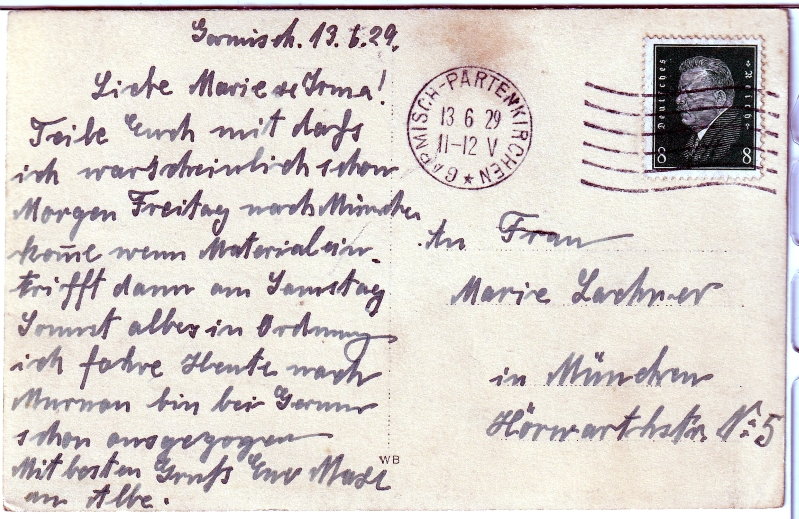 Garmisch. 13.6.29.
Liebe Marie & Irma!
Teile Euch mit daß
ich warscheinlich schon
Morgen Freitag nach München
kom̄e wenn Material ein-
trifft dann am Samstag
Sonnst alles in Ordnung
ich fahre Heute nach
Murnau bin bei
schon ausgezogen
Mit besten Gruß Euer
an
GARMISCH-PARTENKIRCHEN
13 6 29
11-12 V
Deutsches Reich
8 8
An Frau
Marie Lachner
in München
Hörwarthstr. No 5
WB